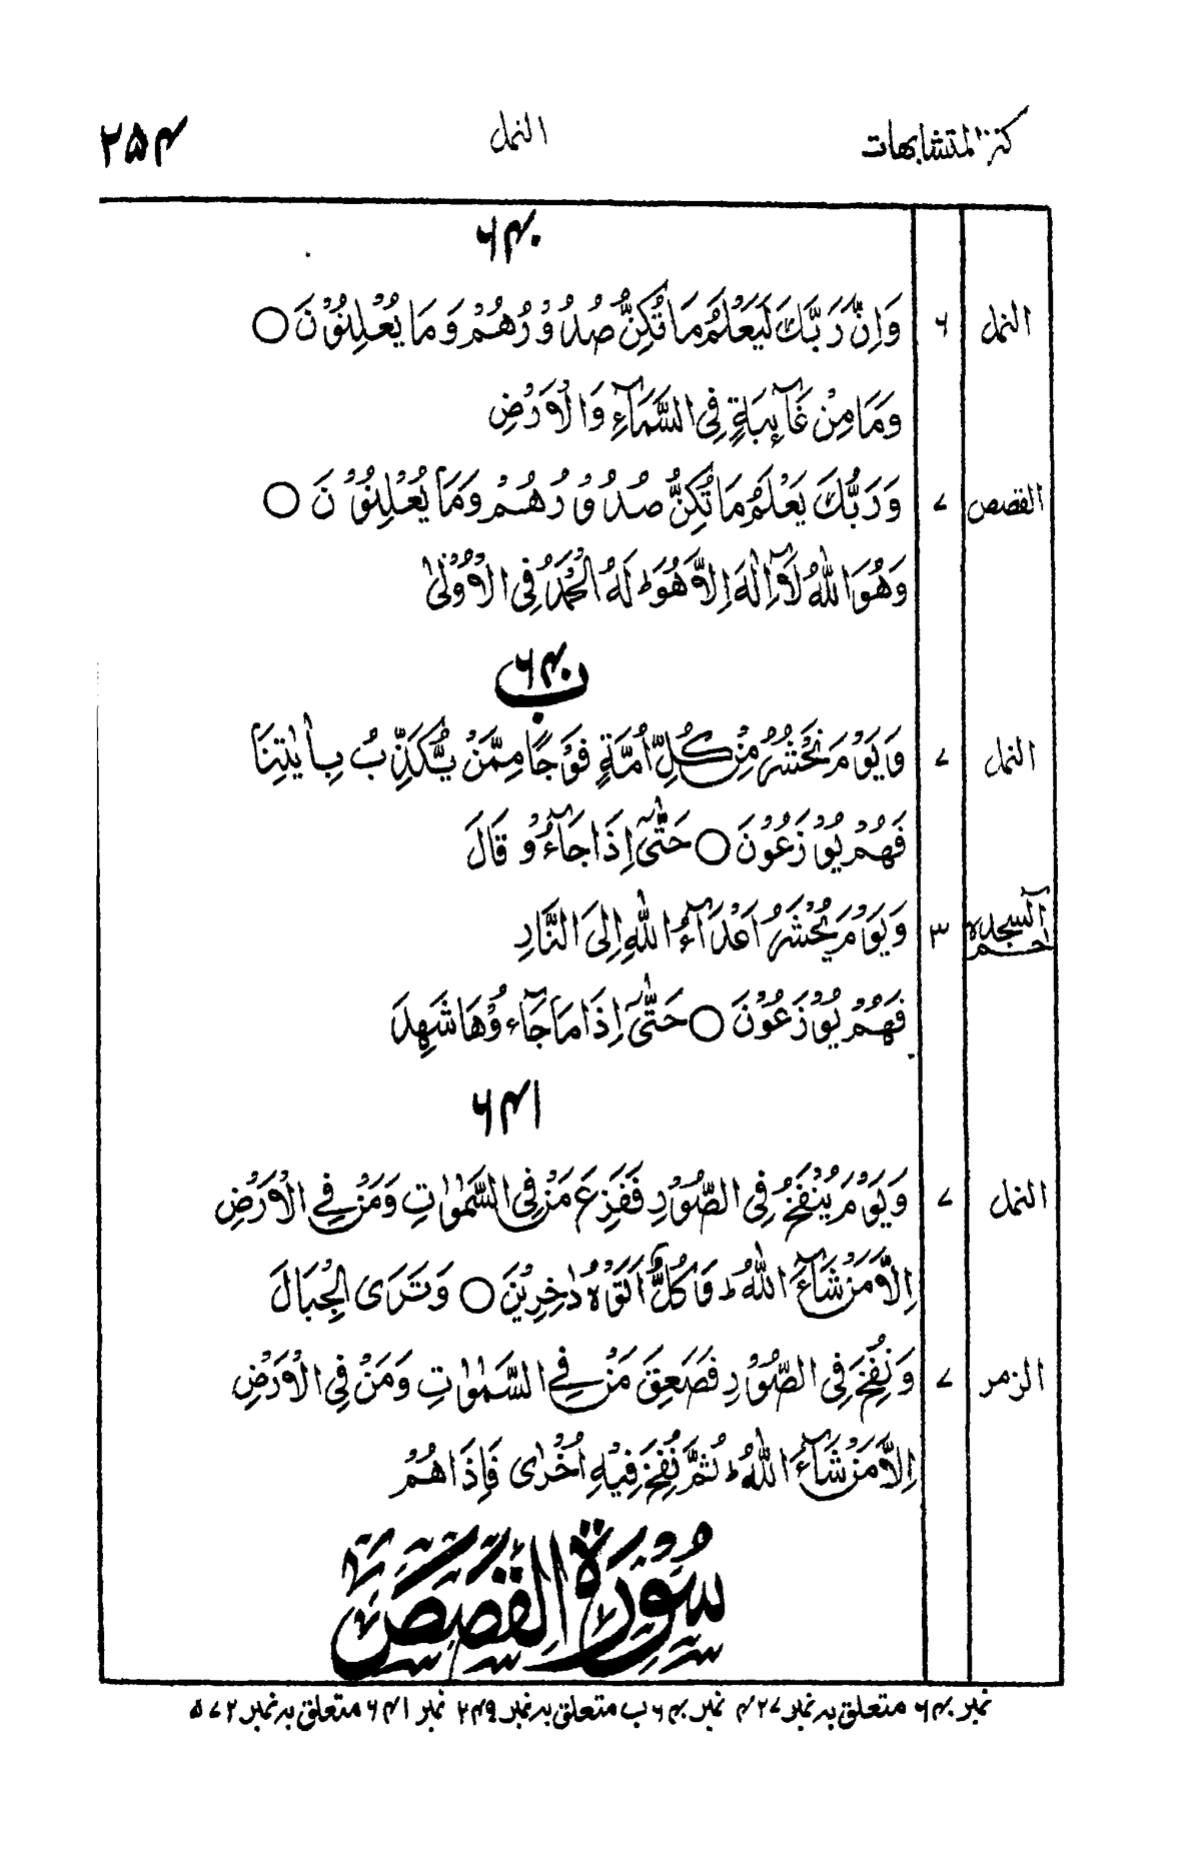 كنز المتشابهات النمل ۲۵۴
۶۴۰
النمل ۶ وَاِنَّ رَبَّكَ لَيَعْلَمُ مَا تُكِنُّ صُدُوْرُهُمْ وَمَا يُعْلِنُوْنَ ○
وَمَا مِنْ غَآئِبَةٍ فِى السَّمَآءِ وَالْاَرْضِ
القصص ۷ وَرَبُّكَ يَعْلَمُ مَا تُكِنُّ صُدُوْرُهُمْ وَمَا يُعْلِنُوْنَ ○
وَهُوَ اللّٰهُ لَآ اِلٰهَ اِلَّا هُوَ ط لَهُ الْحَمْدُ فِى الْاُوْلٰى
۶۴۰ ب
النمل ۷ وَيَوْمَ نَحْشُرُ مِنْ كُلِّ اُمَّةٍ فَوْجًا مِّمَّنْ يُّكَذِّبُ بِاٰيٰتِنَا
فَهُمْ يُوْزَعُوْنَ ○ حَتّٰىٓ اِذَا جَآءُوْ قَالَ
حٰم السجدة ۳ وَيَوْمَ يُحْشَرُ اَعْدَآءُ اللّٰهِ اِلَى النَّارِ
فَهُمْ يُوْزَعُوْنَ ○ حَتّٰىٓ اِذَا مَا جَآءُوْهَا شَهِدَ
۶۴۱
النمل ۷ وَيَوْمَ يُنْفَخُ فِى الصُّوْرِ فَفَزِعَ مَنْ فِى السَّمٰوٰتِ وَمَنْ فِى الْاَرْضِ
اِلَّا مَنْ شَآءَ اللّٰهُ ط وَكُلٌّ اَتَوْهُ دٰخِرِيْنَ ○ وَتَرَى الْجِبَالَ
الزمر ۷ وَنُفِخَ فِى الصُّوْرِ فَصَعِقَ مَنْ فِى السَّمٰوٰتِ وَمَنْ فِى الْاَرْضِ
اِلَّا مَنْ شَآءَ اللّٰهُ ط ثُمَّ نُفِخَ فِيْهِ اُخْرٰى فَاِذَا هُمْ
سُوْرَةُ الْقَصَصِ
نمبر ۶۴۰ متعلق بہ نمبر ۴۲۷ نمبر ۶۴۰ب متعلق بہ نمبر ۲۴۹ نمبر ۶۴۱ متعلق بہ نمبر ۵۷۲